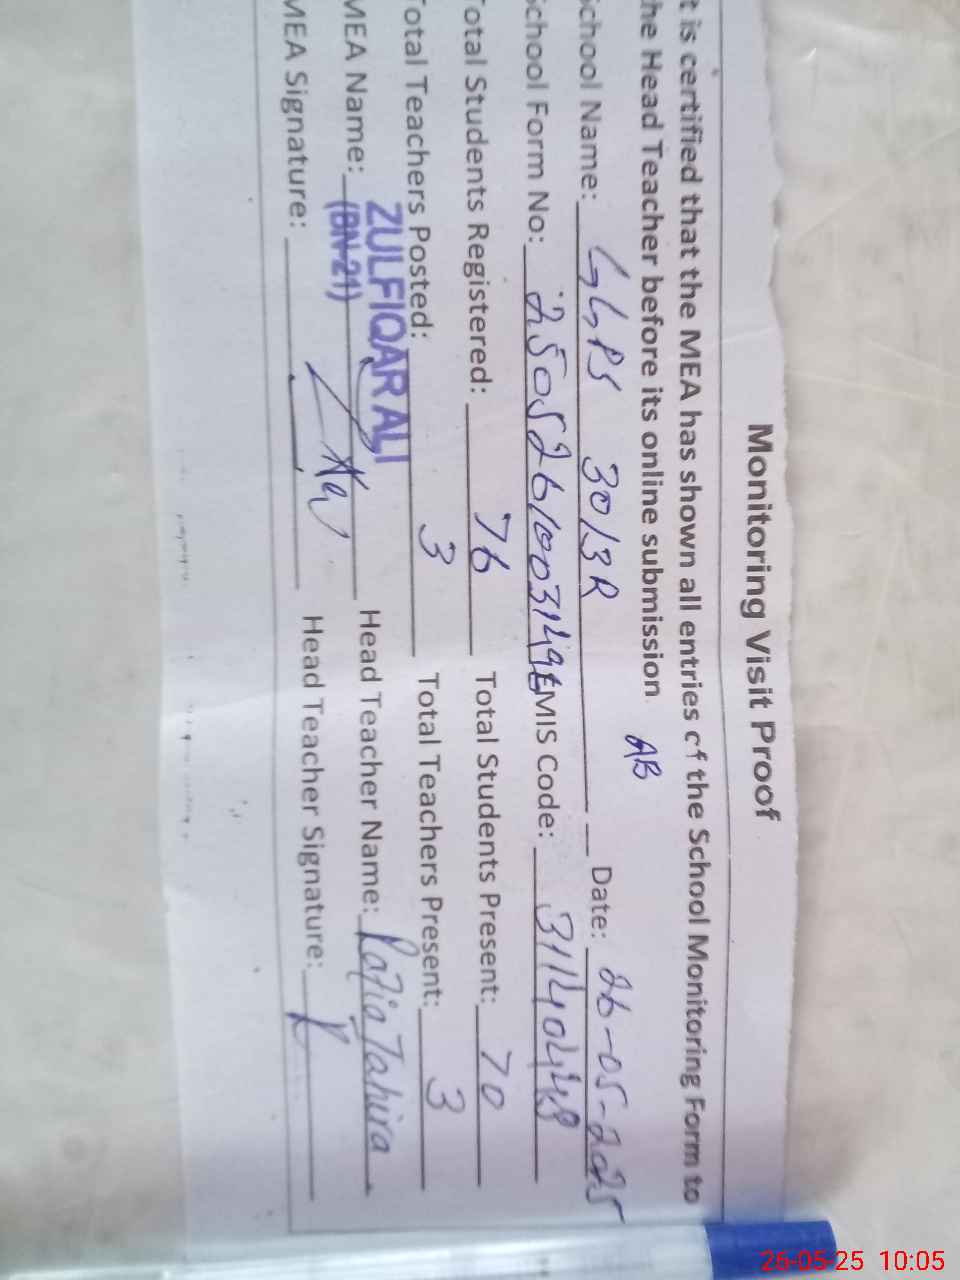 Monitoring Visit Proof
t is certified that the MEA has shown all entries of the School Monitoring Form to
he Head Teacher before its online submission AB
School Name: GGPS 30/3R Date: 26-05-2025
School Form No: 2505261003149 EMIS Code: 31140448
Total Students Registered: 76 Total Students Present: 70
Total Teachers Posted: 3 Total Teachers Present: 3
ZULFIQAR ALI
MEA Name: (BN-21) Head Teacher Name: Rafia Tahira
MEA Signature: Head Teacher Signature:
26-05-25 10:05